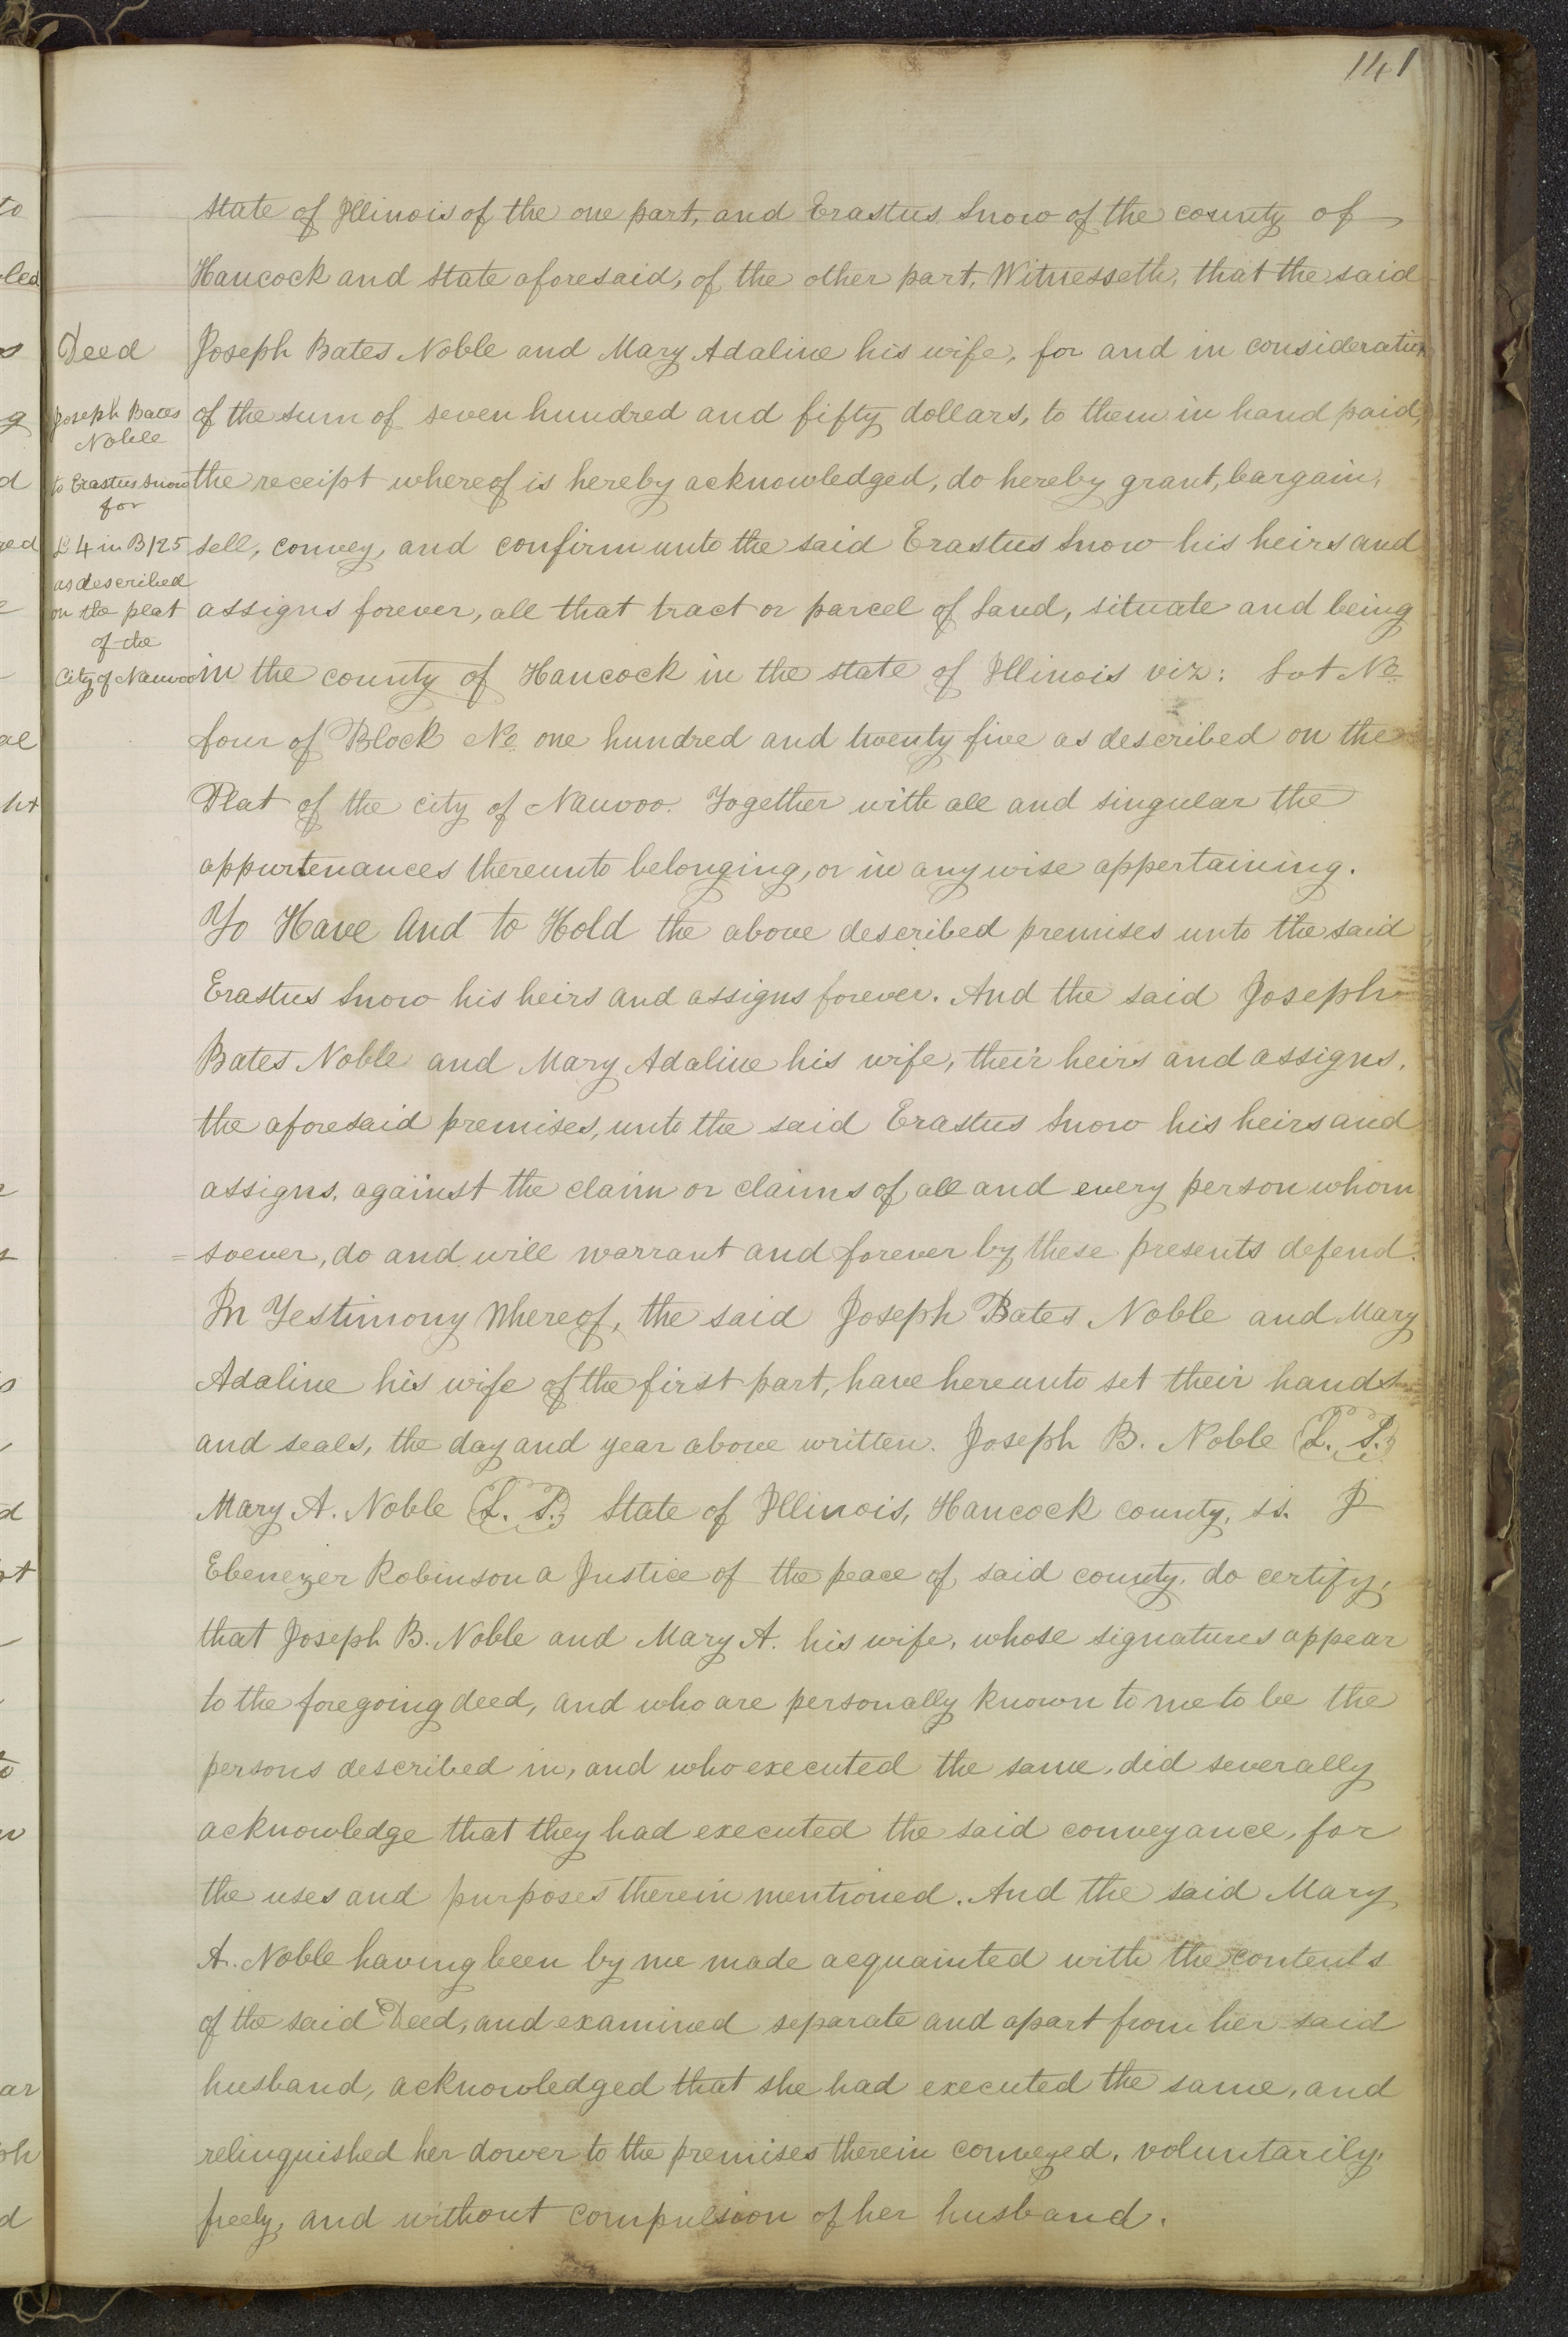 141
state of Illinois of the one part, and Erastus Snow of the county of
Hancock and State aforesaid, of the other part, Witnesseth, that the said
Deed
Joseph Bates Noble and Mary Adaline his wife, for and in consideration
Joseph Bates
Noble
of the sum of seven hundred and fifty dollars, to them in hand paid,
to Erastus Snow
for
the receipt whereof is hereby acknowledged, do hereby grant, bargain,
L 4 in B 125
sell, convey, and confirm unto the said Erastus Snow his heirs and
as described
on the plat
of the
assigns forever, all that tract or parcel of Land, situate and being
City of Nauvoo
in the county of Hancock in the state of Illinois viz: Lot No
four of Block No one hundred and twenty five as described on the
Plat of the city of Nauvoo. Together with all and singular the
appurtenances thereunto belonging, or in any wise appertaining.
To Have And to Hold the above described premises unto the said
Erastus Snow his heirs and assigns forever. And the said Joseph
Bates Noble and Mary Adaline his wife, their heirs and assigns,
the aforesaid premises, unto the said Erastus Snow his heirs and
assigns, against the claim or claims of all and every person whom
= soever, do and will warrant and forever by these presents defend.
In Testimony Whereof, the said Joseph Bates Noble and Mary
Adaline his wife of the first part, have hereunto set their hands
and seals, the day and year above written. Joseph B. Noble (L. S.)
Mary A. Noble (L. S.) State of Illinois, Hancock county, ss. I
Ebenezer Robinson a Justice of the peace of said county, do certify,
that Joseph B. Noble and Mary A. his wife, whose signatures appear
to the foregoing deed, and who are personally known to me to be the
persons described in, and who executed the same, did severally
acknowledge that they had executed the said conveyance, for
the uses and purposes therein mentioned. And the said Mary
A. Noble having been by me made acquainted with the contents
of the said Deed, and examined separate and apart from her said
husband, acknowledged that she had executed the same, and
relinquished her dower to the premises therein conveyed, voluntarily,
freely, and without compulsion of her husband.